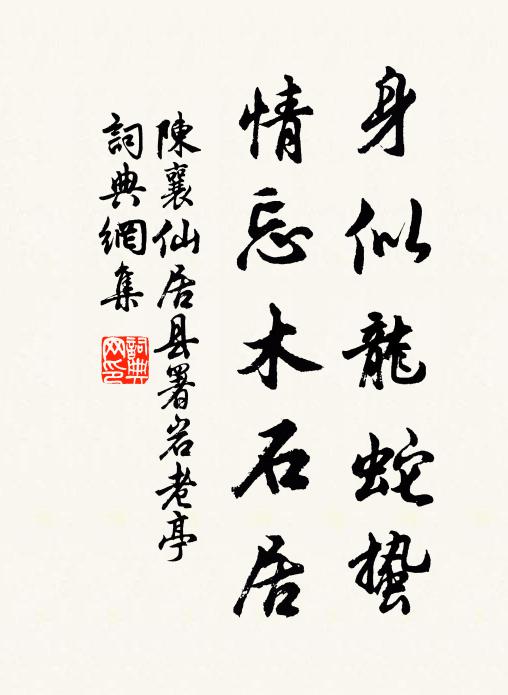 身似龍蛇蟄
情忘木石居
陳襄仙居县署岩老亭
詞典網集
詞典網印